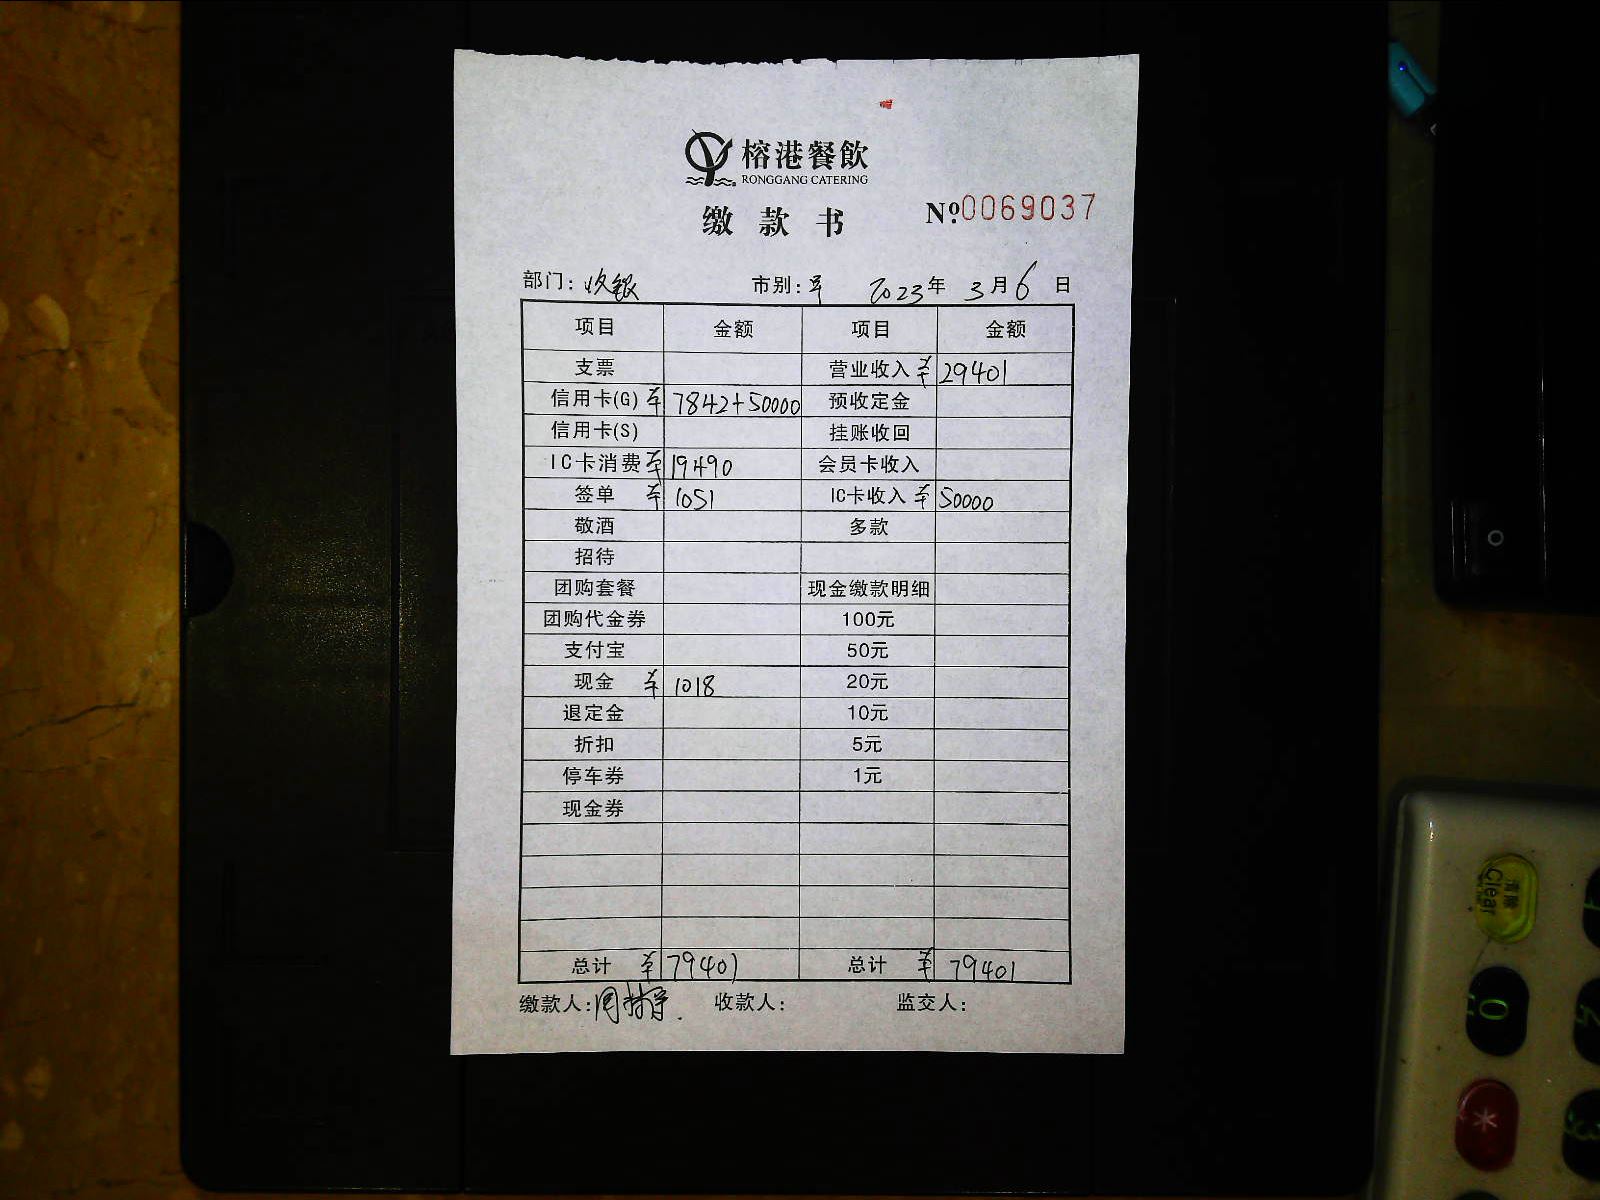 榕港餐飲
RONGGANG CATERING
缴款书 Nº:0069037
部门: 收银 市别: 早 2023年3月6日
项目 金额 项目 金额
支票 营业收入 ¥ 29401
信用卡(G) ¥ 7842+50000 预收定金
信用卡(S) 挂账收回
IC卡消费 ¥ 19490 会员卡收入
签单 ¥ 1051 IC卡收入 ¥ 50000
敬酒 多款
招待
团购套餐 现金缴款明细
团购代金券 100元
支付宝 50元
现金 ¥ 1018 20元
退定金 10元
折扣 5元
停车券 1元
现金券
总计 ¥ 79401 总计 ¥ 79401
缴款人: 收款人: 监交人:
清除
Clear
0
*